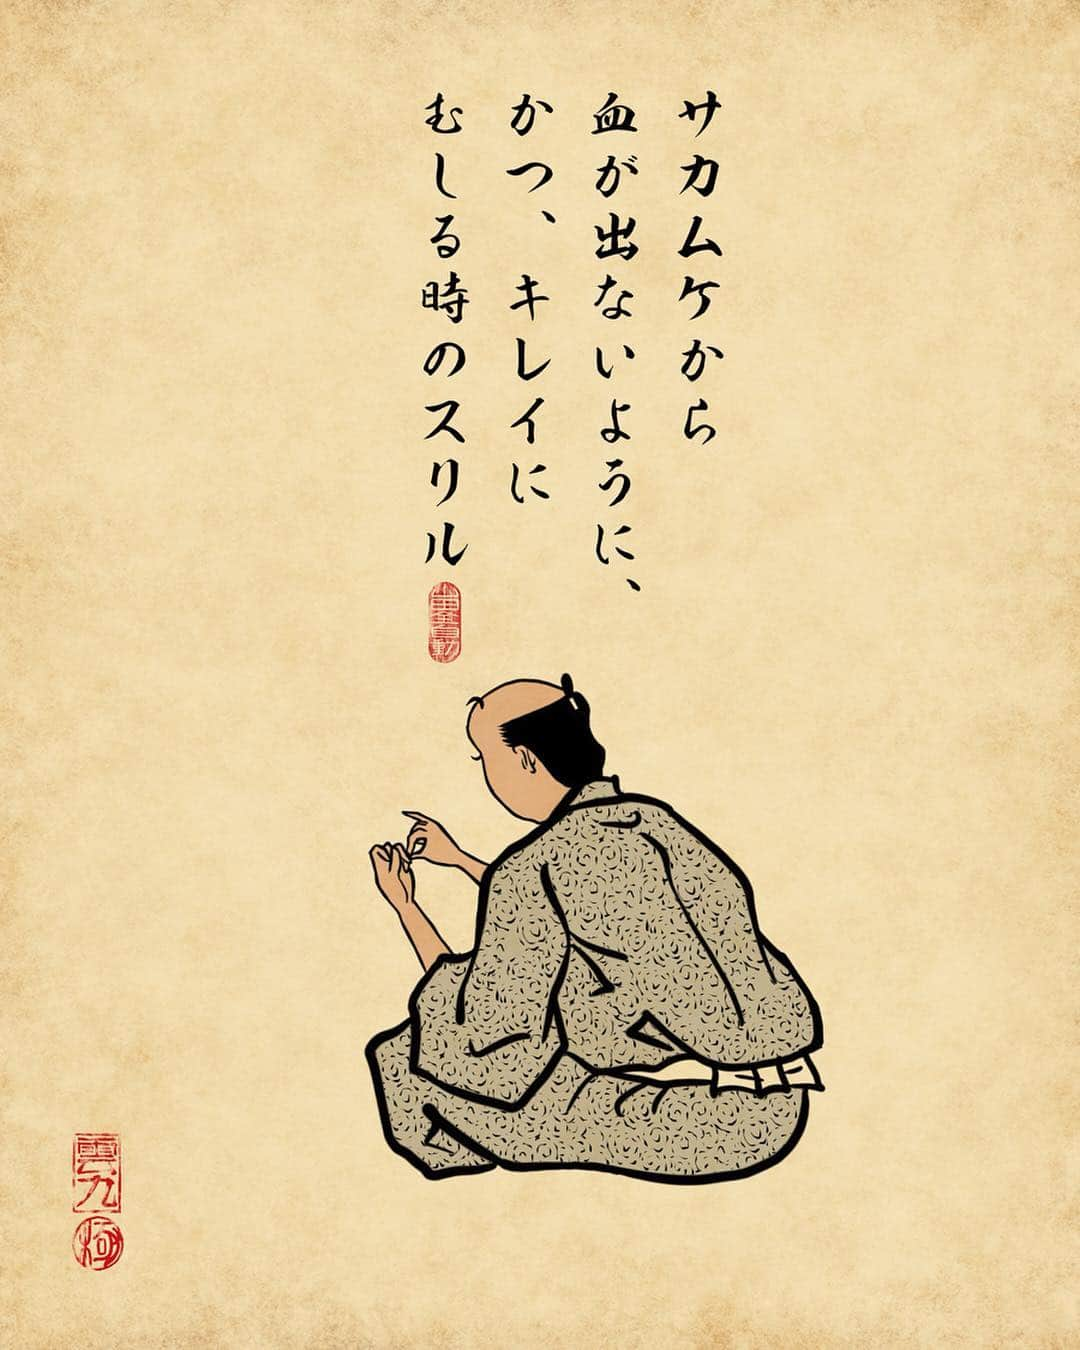 サカムケから
血が出ないように、
かつ、キレイに
むしる時のスリル